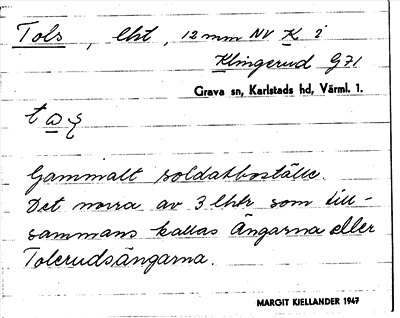 Tols, lht, 12 mm NV K i
Klingerud G71
Grava sn, Karlstads hd, Värml. 1.
Gammalt soldatboställe.
Det norra av 3 lhtr som till-
sammans kallas Ängarna eller
Tolerudsängarna.
MARGIT KJELLANDER 1947